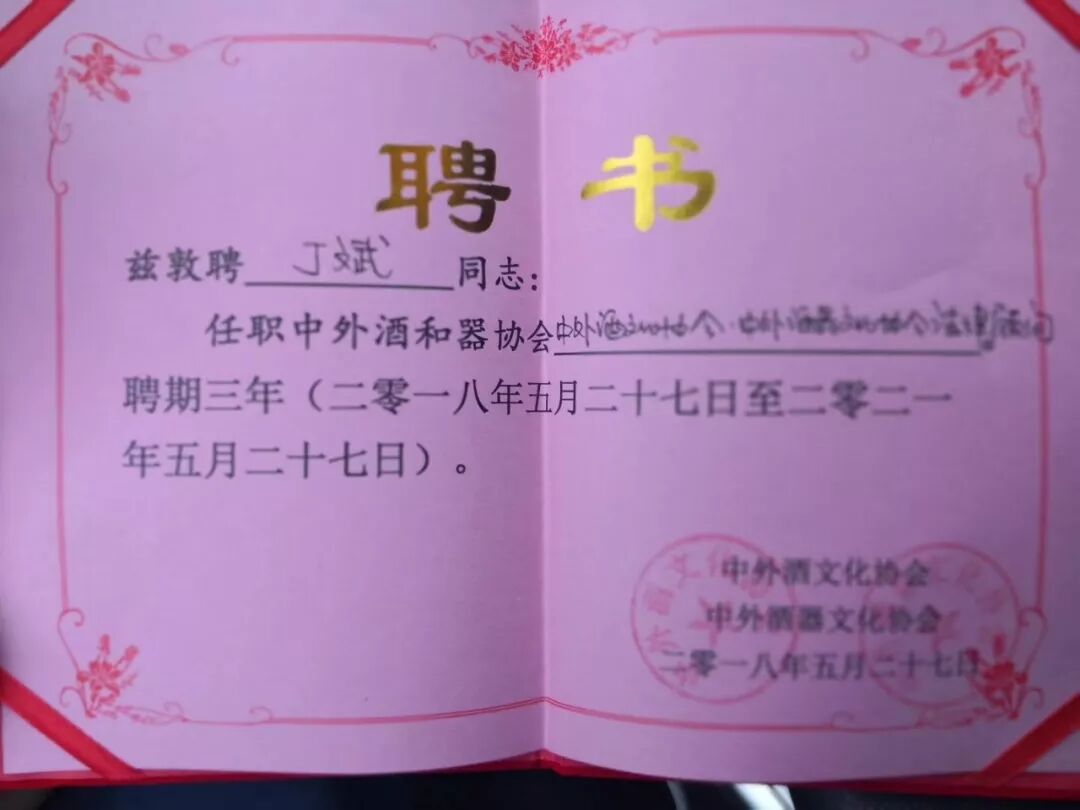 聘 书
兹敦聘 丁 同志：
任职中外酒和器协会中外酒 中外酒 法律顾问
聘期三年（二零一八年五月二十七日至二零二一
年五月二十七日）。
中外酒文化协会
中外酒器文化协会
二零一八年五月二十七日